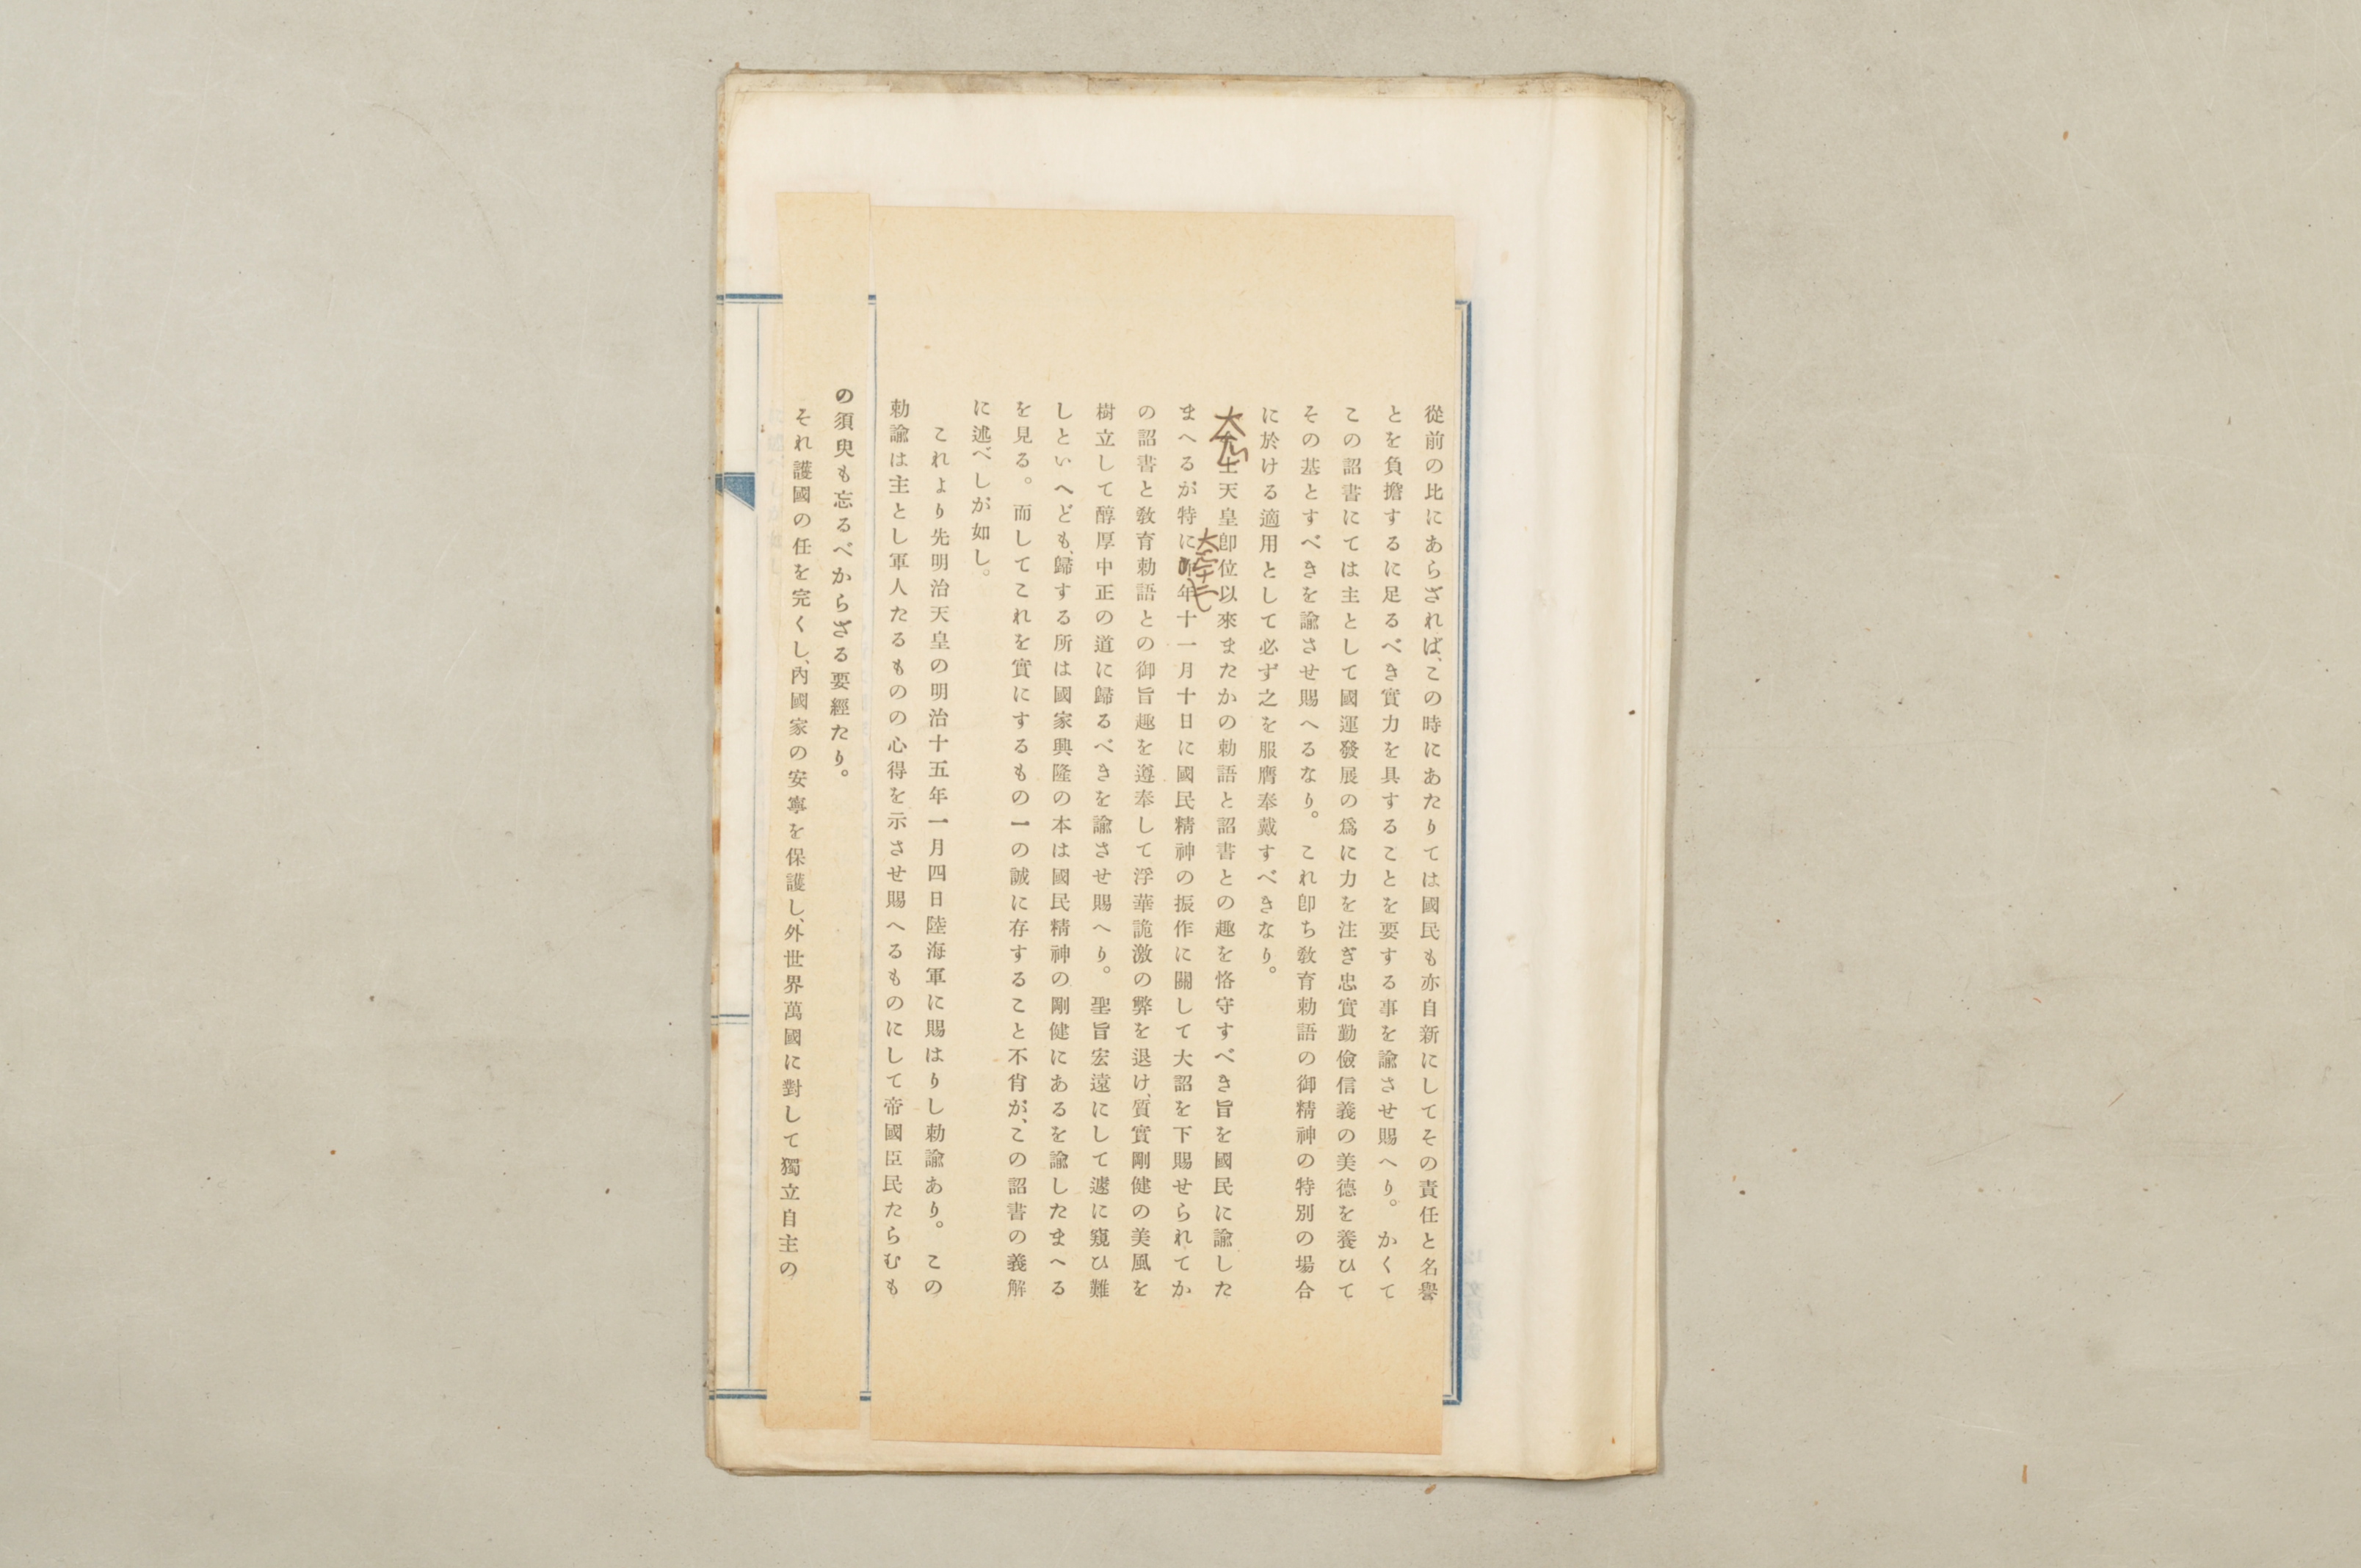 從前の比にあらざれば、この時にあたりては國民も亦自新にしてその責任と名譽
とを負擔するに足るべき實力を具することを要する事を諭させ賜へり。かくて
この詔書にては主として國運發展の爲に力を注ぎ忠實勤儉信義の美德を養ひて
その基とすべきを諭させ賜へるなり。これ卽ち敎育勅語の御精神の特別の場合
に於ける適用として必ず之を服膺奉戴すべきなり。
天皇卽位以來またかの勅語と詔書との趣を恪守すべき旨を國民に諭した
まへるが特に年十一月十日に國民精神の振作に關して大詔を下賜せられてか
の詔書と敎育勅語との御旨趣を遵奉して浮華詭激の弊を退け、質實剛健の美風を
樹立して醇厚中正の道に歸るべきを諭させ賜へり。聖旨宏遠にして遽に窺ひ難
しといへども、歸する所は國家興隆の本は國民精神の剛健にあるを諭したまへる
を見る。而してこれを實にするもの一の誠に存すること不肖が、この詔書の義解
に述べしが如し。
これより先明治天皇の明治十五年一月四日陸海軍に賜はりし勅諭あり。この
勅諭は主とし軍人たるものの心得を示させ賜へるものにして帝國臣民たらむも
の須臾も忘るべからざる要經たり。
それ護國の任を完くし、內國家の安寧を保護し、外世界萬國に對して獨立自主の